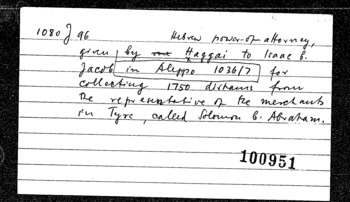 1080 J 96 Hebrew power-of-attorney,
given by Haggai to Isaac b.
Jacob in Aleppo 1036/7 for
collecting 1750 dirhams from
the representative of the merchants
in Tyre, called Solomon b. Abraham.
100951